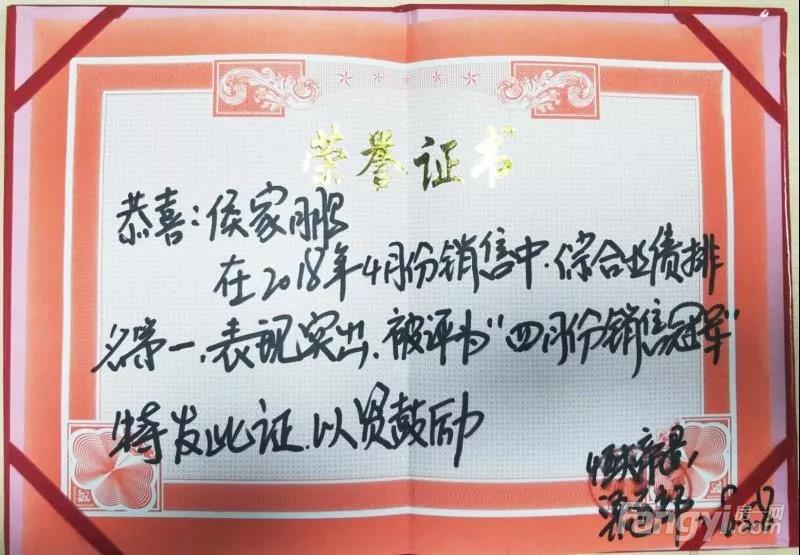 荣誉证书
恭喜:侯家鹏
在2018年4月份销售中.综合业绩排
名第一.表现突出.被评为"四月份销售冠军"
特发此证.以资鼓励
帝景
Fangyi房一网